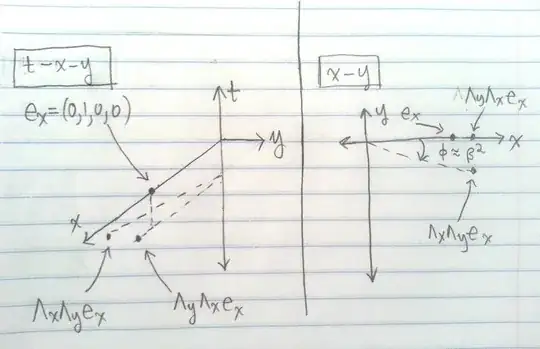 t-x-y
eₓ=(0,1,0,0)
t
y
x
ΛₓΛyeₓ
ΛyΛₓeₓ
x-y
y
eₓ
ΛyΛₓeₓ
x
ϕ≈β²
ΛₓΛyeₓ